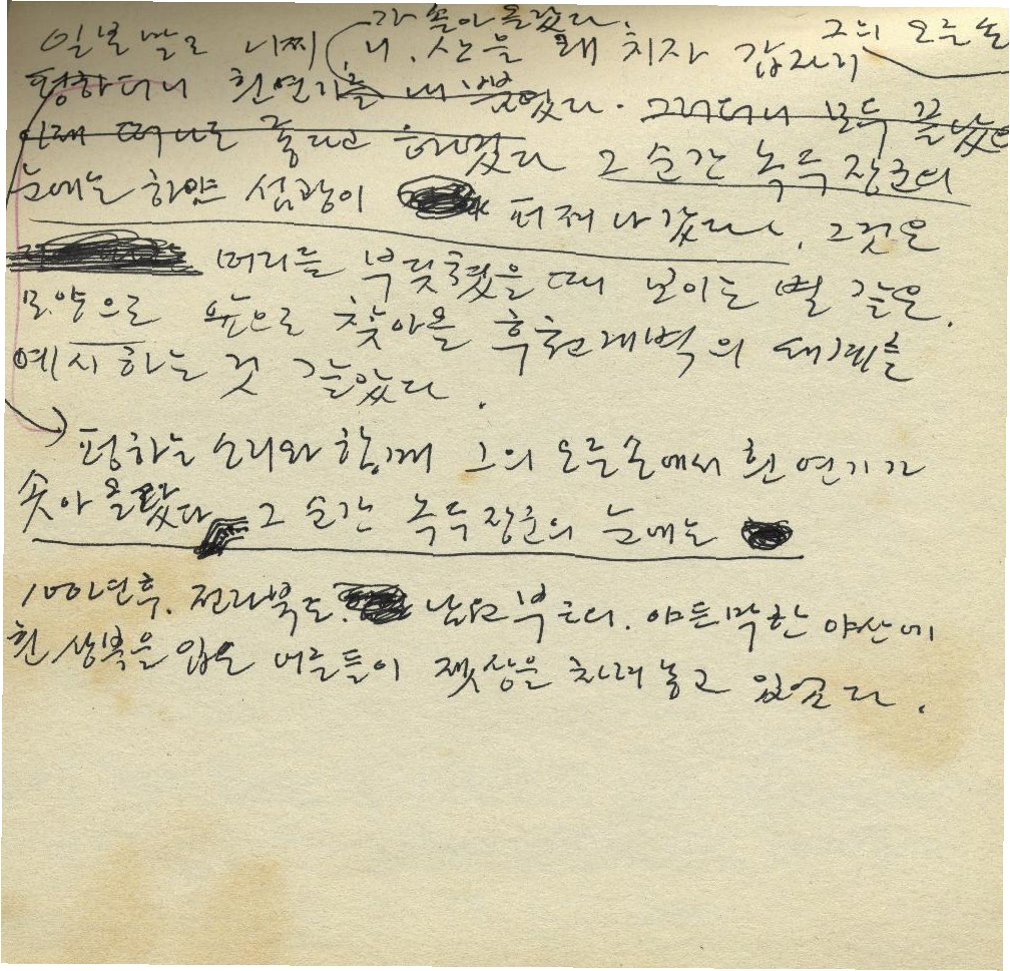 가 솟아 올랐다.
일본말로 니찌, 니, 산을 외치자 갑자기 그의 오른손
펑하더니 흰연기를 내뿜었다. 그러더니 모두 끝났으
이제 떠나도 좋다고 하였다 그 순간 녹두장군의
눈에는 하얀 섬광이 퍼져나갔다. 그것은
머리를 부딪혔을 때 보이는 별 같은,
모양으로 앞으로 찾아올 후천개벽의 세계를
예시하는 것 같았다.
펑하는 소리와 함께 그의 오른손에서 흰 연기가
솟아 올랐다 그 순간 녹두장군의 눈에는
100년후. 전라북도. 남원 부근의. 야트막한 야산에
흰 상복을 입은 어른들이 젯상을 차려놓고 있었다.